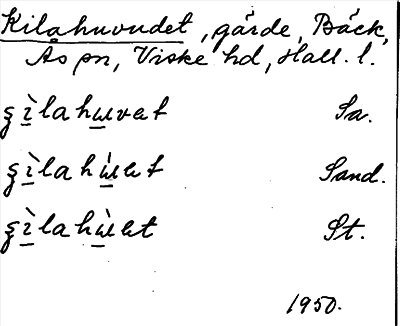 Kilahuvudet, gärde, Bäck,
As sn, Viske hd, Hall. l.
ʂìlahuvət Sa.
ʂìlahùət Sand.
ʂìlahùət St.
1950.